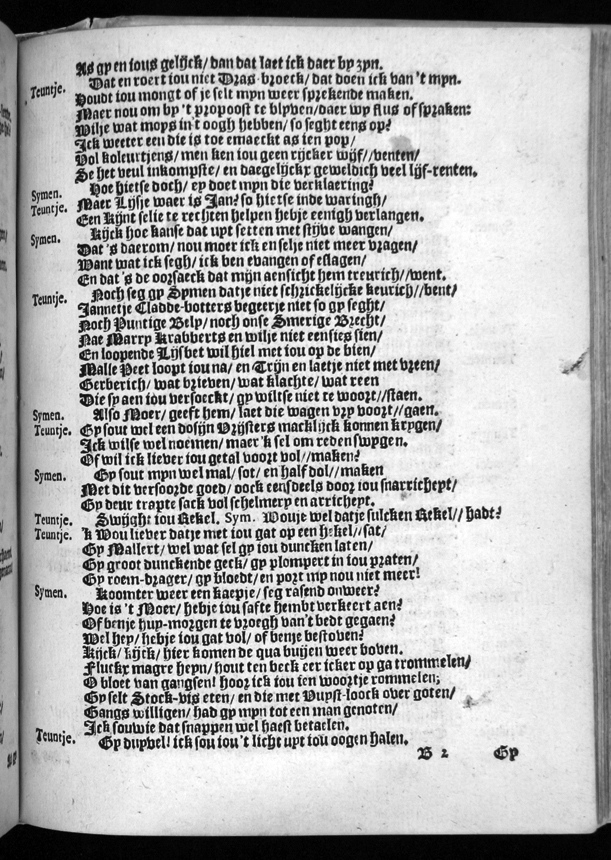 As gy en ious gelijck/ dan dat laet ick daer by zyn.
Teuntje. Dat en roert iou niet Dras-broeck/ dat doen ick van 't myn.
Houdt iou mongt of je selt myn weer sprekende maken.
Maer nou om by 't propoost te blyven/ daer wy flus of spraken:
Wilje wat mops in't oogh hebben/ so seght eens op?
Ick weeter een die is toe emaeckt as ien pop/
Vol koleurtjens/ men ken iou geen rijcker wijf//venten/
Se het veul inkompste/ en daegelijckx geweldich veel lijf-renten.
Symen. Hoe hietse doch/ ey doet myn die verklaering?
Teuntje. Maer Lijsje waer is Jan? so hietse inde waringh/
Een Kijnt selje te rechten helpen hebje eenigh verlangen.
Symen. Kijck hoe kanse dat upt setten met stijve wangen/
Dat 's daerom/ nou moer ick en selje niet meer vragen/
Want wat ick segh/ ick ben evangen of eslagen/
En dat 's de oorsaeck dat mijn aensicht hem treurich//went.
Teuntje. Noch seg gy Symen datje niet schrickelijcke keurich//bent/
Jannetje Cladde-botters begeerje niet so gy seght/
Noch Puntige Bely/ noch onse Smerige Brecht/
Nae Marry Krabberts en wilje niet eensjes sien/
En loopende Lijsbet wil hiel met iou op de bien/
Malle Peet loopt iou na/ en Trijn en laetje niet met vreen/
Gerberich/ wat brieven/ wat klachte/ wat reen
Die sy aen iou versoeckt/ gy wiltse niet te woort//staen.
Symen. Also Moer/ geeft hem/ laet die wagen vry voort//gaen.
Teuntje. Gy sout wel een dosijn Vrijsters macklijck konnen krygen/
Ick wilse wel noemen/ maer 'k sel om reden swygen.
Of wil ick liever iou getal voort vol//maken?
Symen. Gy sout myn wel mal/ sot/ en half dol//maken
Met dit versoorde goed/ oock eensdeels door iou snarricheyt/
Gy deur trapte sack vol schelmery en arricheyt.
Teuntje. Swijght iou Rekel. Sym. Wouje wel datje sulcken Rekel//hadt?
Teuntje. 'k Wou liever datje met iou gat op een hekel//sat/
Gy Mallert/ wel wat sel gy iou duncken laten/
Gy groot dunckende geck/ gy plompert in iou praten/
Gy roem-drager/ gy bloedt/ en port my nou niet meer!
Symen. Koomter weer een kaepje/ seg rasend onweer?
Hoe is 't Moer/ hebje iou safte hembt verkeert aen?
Of benje huy-morgen te vroegh van't bedt gegaen?
Wel hey/ hebje iou gat vol/ of benje bestoven?
Kijck/ kijck/ hier komen de qua buijen weer boven.
Fluckx magre heyn/ hout ten beck eer icker op ga trommelen/
O bloet van gangsen! hoor ick iou ien woortje rommelen;
Gy selt Stock-vis eten/ en die met Vuyst-loock over goten/
Gangs willigen/ had gy myn tot een man genoten/
Ick souwje dat snappen wel haest betaelen.
Teuntje. Gy duyvel! ick sou iou't licht uyt iou oogen halen.
B 2 Gy